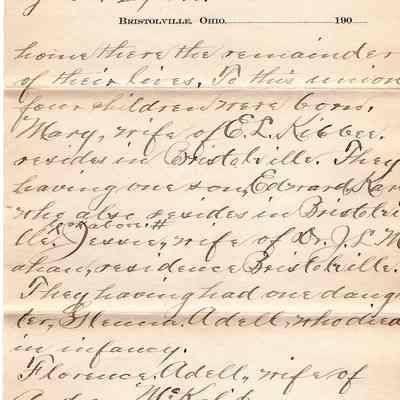 BRISTOLVILLE, OHIO, 190
home there the remainder
of their lives. To this union
four children were born.
Mary, wife of E. L. Kibbee.
resides in Bristolville. They
having one son, Edward Kar
who also resides in Bristolvi
lle. Jessie, wife of Dr. J. L. M
ahan, residence Bristolville.
They having had one daugh
ter, Glenna Adell, who died
in infancy.
Florence Adell, wife of